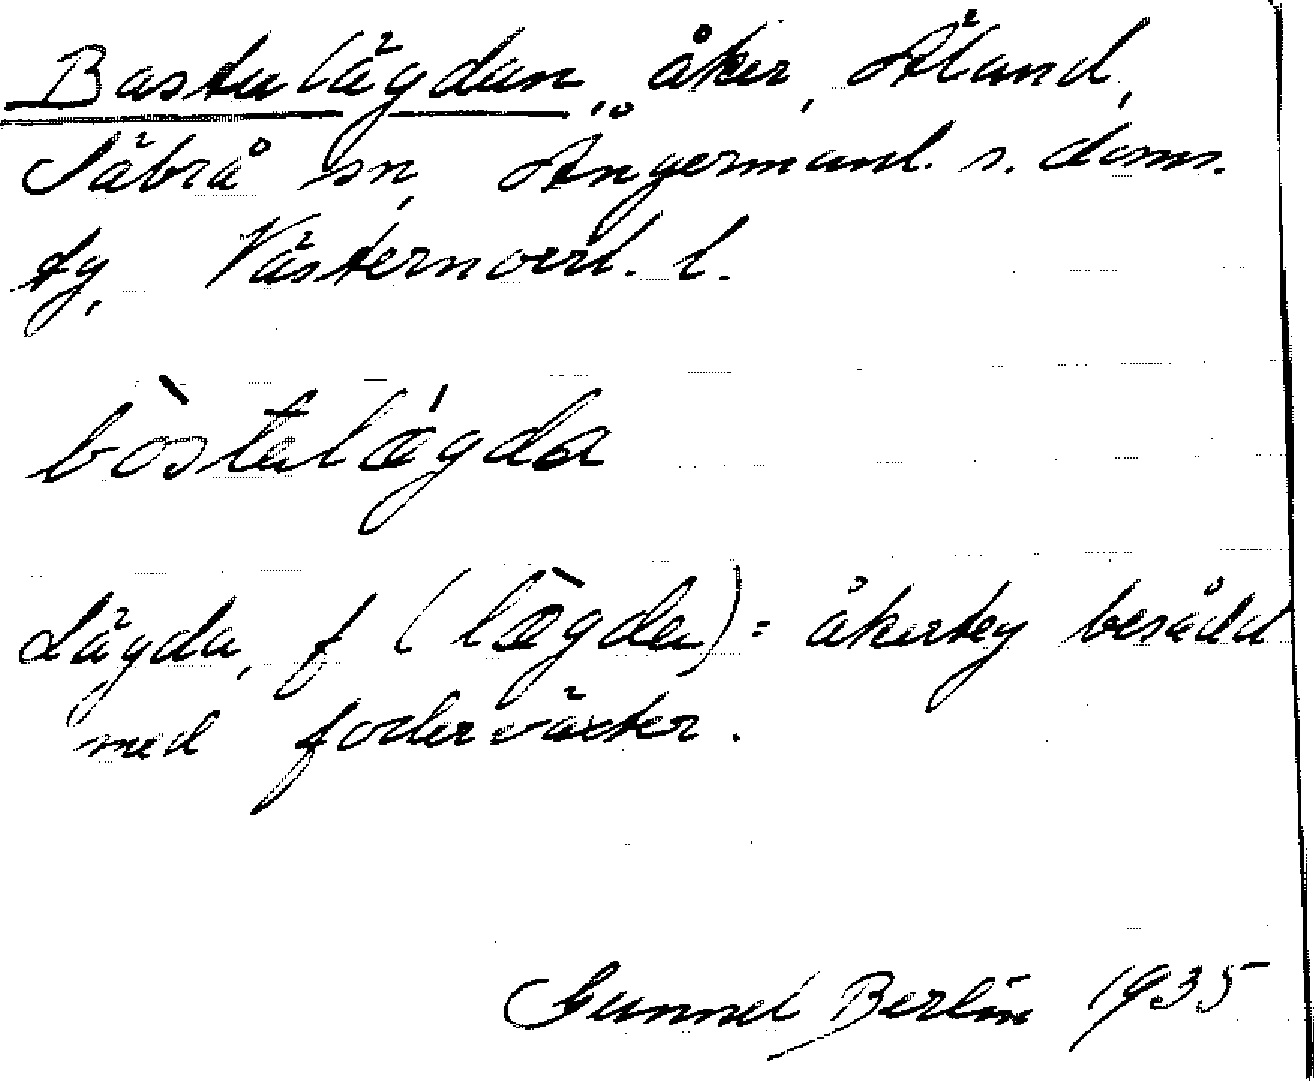 Bastulägdan, åker, Äland,
Säbrå sn, Ångermanl. s. doms.
tg, Västernorrl. l.
bòstalǽgda
Lägda, f (lægda) = åkerteg besådd
med foderväxter.
Gunnel Berlin 1935